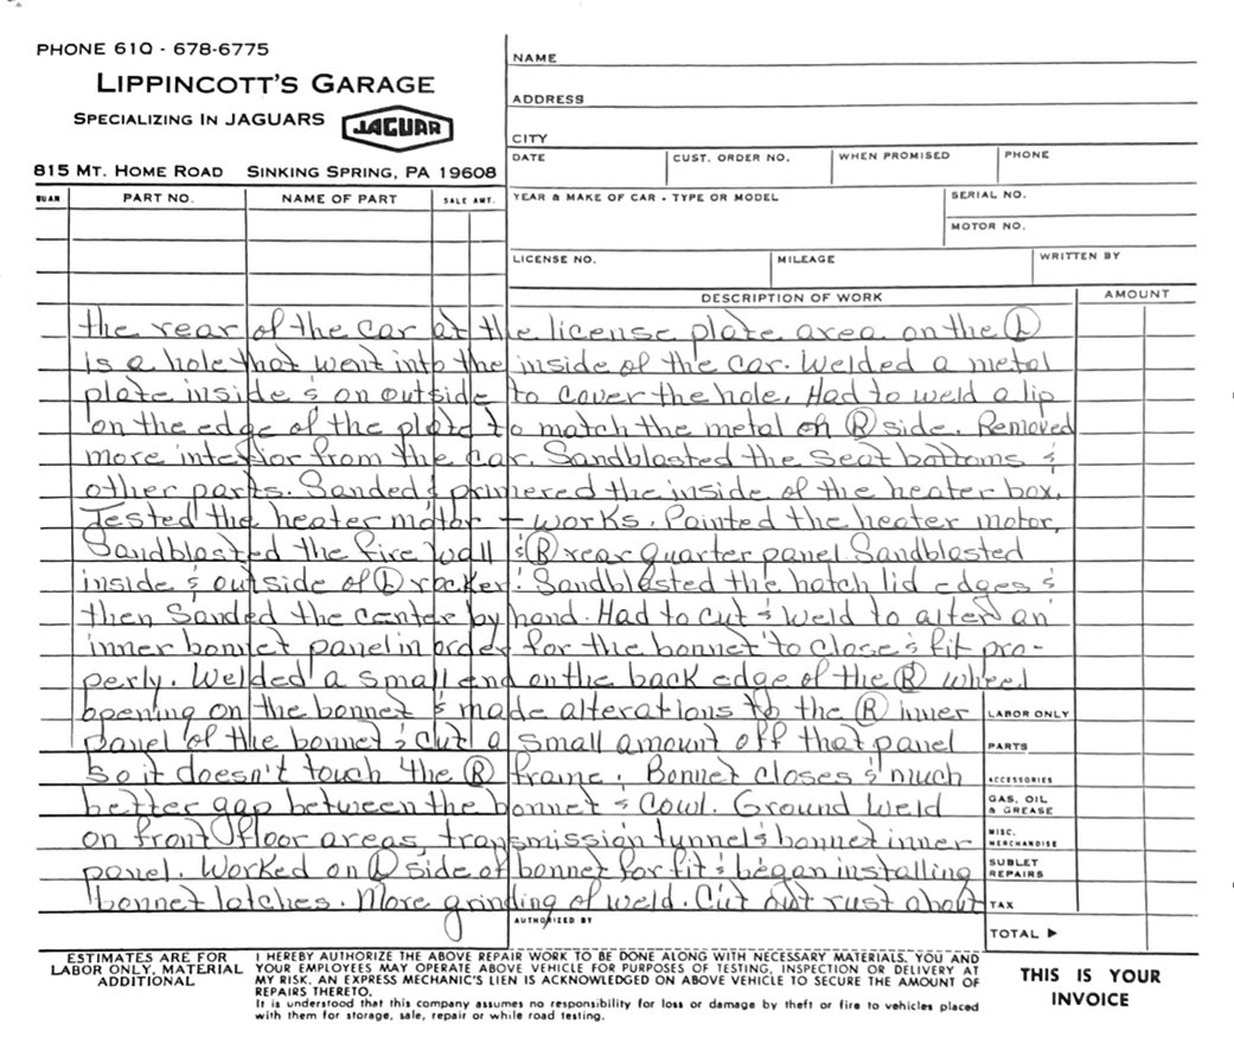 PHONE 610 - 678-6775
LIPPINCOTT'S GARAGE
SPECIALIZING IN JAGUARS
JAGUAR
815 MT. HOME ROAD SINKING SPRING, PA 19608
NAME
ADDRESS
CITY
DATE CUST. ORDER NO. WHEN PROMISED PHONE
QUAN PART NO. NAME OF PART SALE AMT.
YEAR & MAKE OF CAR - TYPE OR MODEL SERIAL NO.
MOTOR NO.
LICENSE NO. MILEAGE WRITTEN BY
DESCRIPTION OF WORK AMOUNT
the rear of the car at the license plate area on the Ⓛ
is a hole that went into the inside of the car. Welded a metal
plate inside & on outside to cover the hole. Had to weld a lip
on the edge of the plate to match the metal on Ⓡ side. Removed
more interior from the car. Sandblasted the seat bottoms &
other parts. Sanded & primered the inside of the heater box.
Tested the heater motor - works. Painted the heater motor.
Sandblasted the fire wall & Ⓡ rear quarter panel. Sandblasted
inside & outside of Ⓛ rocker. Sandblasted the hatch lid edges &
then Sanded the center by hand. Had to cut & weld to alter an
inner bonnet panel in order for the bonnet to close & fit pro-
perly. Welded a small end on the back edge of the Ⓡ wheel
opening on the bonnet & made alterations to the Ⓡ inner
panel of the bonnet & cut a small amount off that panel
so it doesn't touch the Ⓡ frame. Bonnet closes & much
better gap between the bonnet & cowl. Ground weld
on front floor areas, transmission tunnel & bonnet inner
panel. Worked on Ⓛ side of bonnet for fit & began installing
bonnet latches. More grinding of weld. Cut out rust about
LABOR ONLY
PARTS
ACCESSORIES
GAS, OIL & GREASE
MISC. MERCHANDISE
SUBLET REPAIRS
TAX
AUTHORIZED BY
TOTAL ▶
ESTIMATES ARE FOR
LABOR ONLY, MATERIAL
ADDITIONAL
I HEREBY AUTHORIZE THE ABOVE REPAIR WORK TO BE DONE ALONG WITH NECESSARY MATERIALS. YOU AND
YOUR EMPLOYEES MAY OPERATE ABOVE VEHICLE FOR PURPOSES OF TESTING, INSPECTION OR DELIVERY AT
MY RISK. AN EXPRESS MECHANIC'S LIEN IS ACKNOWLEDGED ON ABOVE VEHICLE TO SECURE THE AMOUNT OF
REPAIRS THERETO.
It is understood that this company assumes no responsibility for loss or damage by theft or fire to vehicles placed
with them for storage, sale, repair or while road testing.
THIS IS YOUR
INVOICE